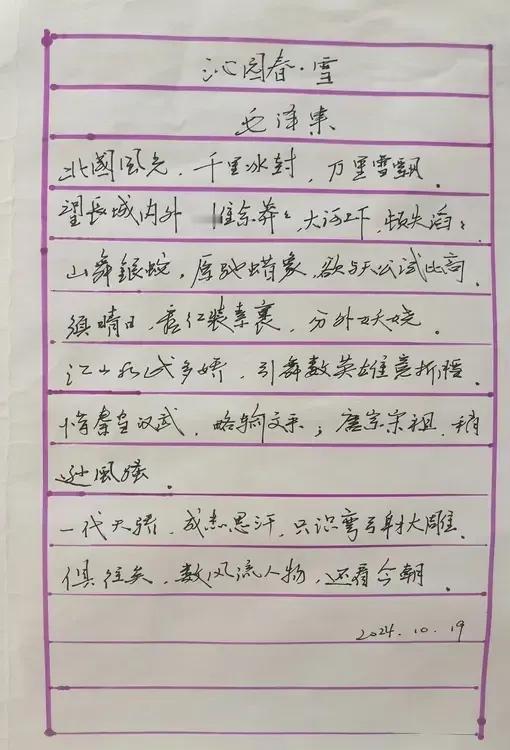 沁园春·雪
毛泽东
北國風光，千里冰封，万里雪飘．
望長城内外 惟余莽々，大河上下，顿失滔々
山舞銀蛇，原驰蜡象，欲与天公试比高
須晴日，看红装素裹，分外妖娆．
江山如此多娇，引無数英雄竟折腰．
惜秦皇汉武，略输文采；唐宗宋祖，稍
逊風骚．
一代天骄，成吉思汗，只识弯弓射大雕．
俱往矣，数风流人物，还看今朝．
2024.10.19